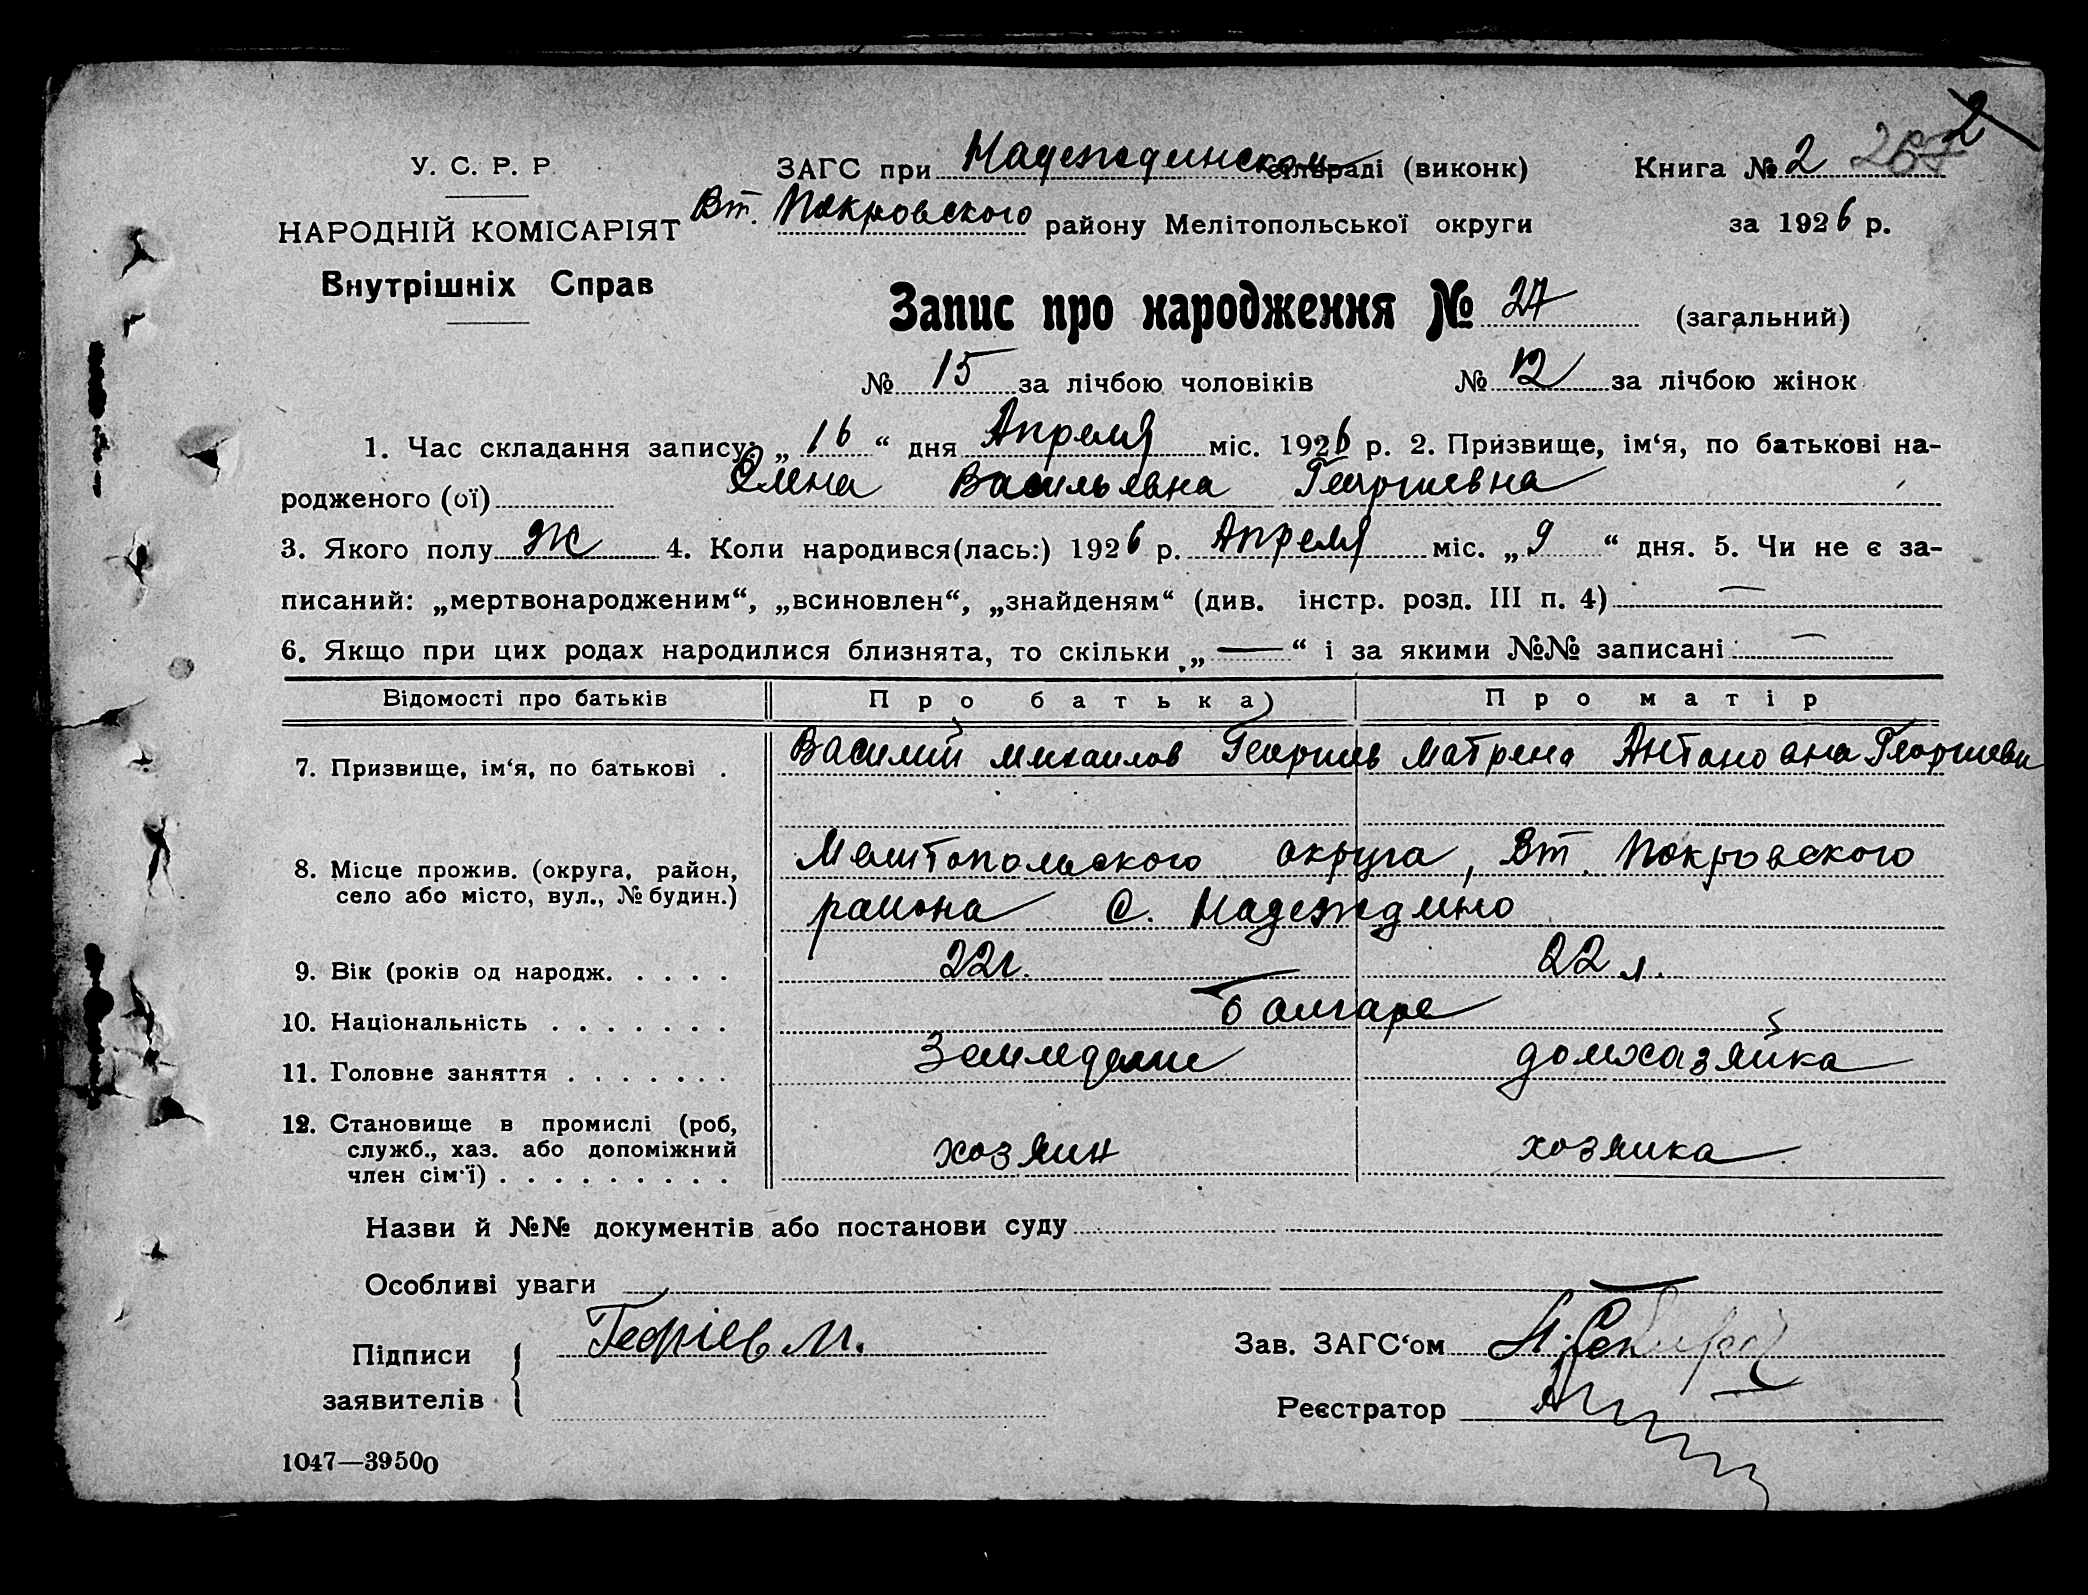 У. С. Р. Р.
НАРОДНІЙ КОМІСАРІЯТ
Внутрішніх Справ
ЗАГС при Надеждинском сільраді (виконк)
Вт. Покровского району Мелітопольської округи
Книга № 2 267 2
за 1926 р.
Запис про народження № 27 (загальний)
№ 15 за лічбою чоловіків № 12 за лічбою жінок
1. Час складання запису: „16“ дня Апреля міс. 1926 р. 2. Призвище, ім‘я, по батькові на-
родженого (ої) Елена Васильевна Георгиевна
3. Якого полу Ж 4. Коли народився(лась:) 1926 р. Апреля міс. „9“ дня. 5. Чи не є за-
писаний: „мертвонародженим“, „всиновлен“, „знайденям“ (див. інстр. розд. III п. 4) —
6. Якщо при цих родах народилися близнята, то скільки „—“ і за якими №№ записані —
Відомості про батьків Про батька) Про матір
7. Призвище, ім‘я, по батькові . Василий Михайлов Георгиев Матрена Антоновна Георгиевн
8. Місце прожив. (округа, район, Мелитопольского округа, Вт. Покровского
село або місто, вул., № будин.) района С. Надеждино
9. Вік (років од народж. . . . . 22 г. 22 л.
10. Національність . . . . . . . Болгаре
11. Головне заняття . . . . . . . Земледелие домхазяйка
12. Становище в промислі (роб,
служб., хаз. або допоміжний хозяин хозяика
член сім‘ї) . . . . . . . . .
Назви й №№ документів або постанови суду
Особливі уваги
Підписи
заявителів
Геориев М.
Зав. ЗАГС‘ом
Реєстратор
1047—39500